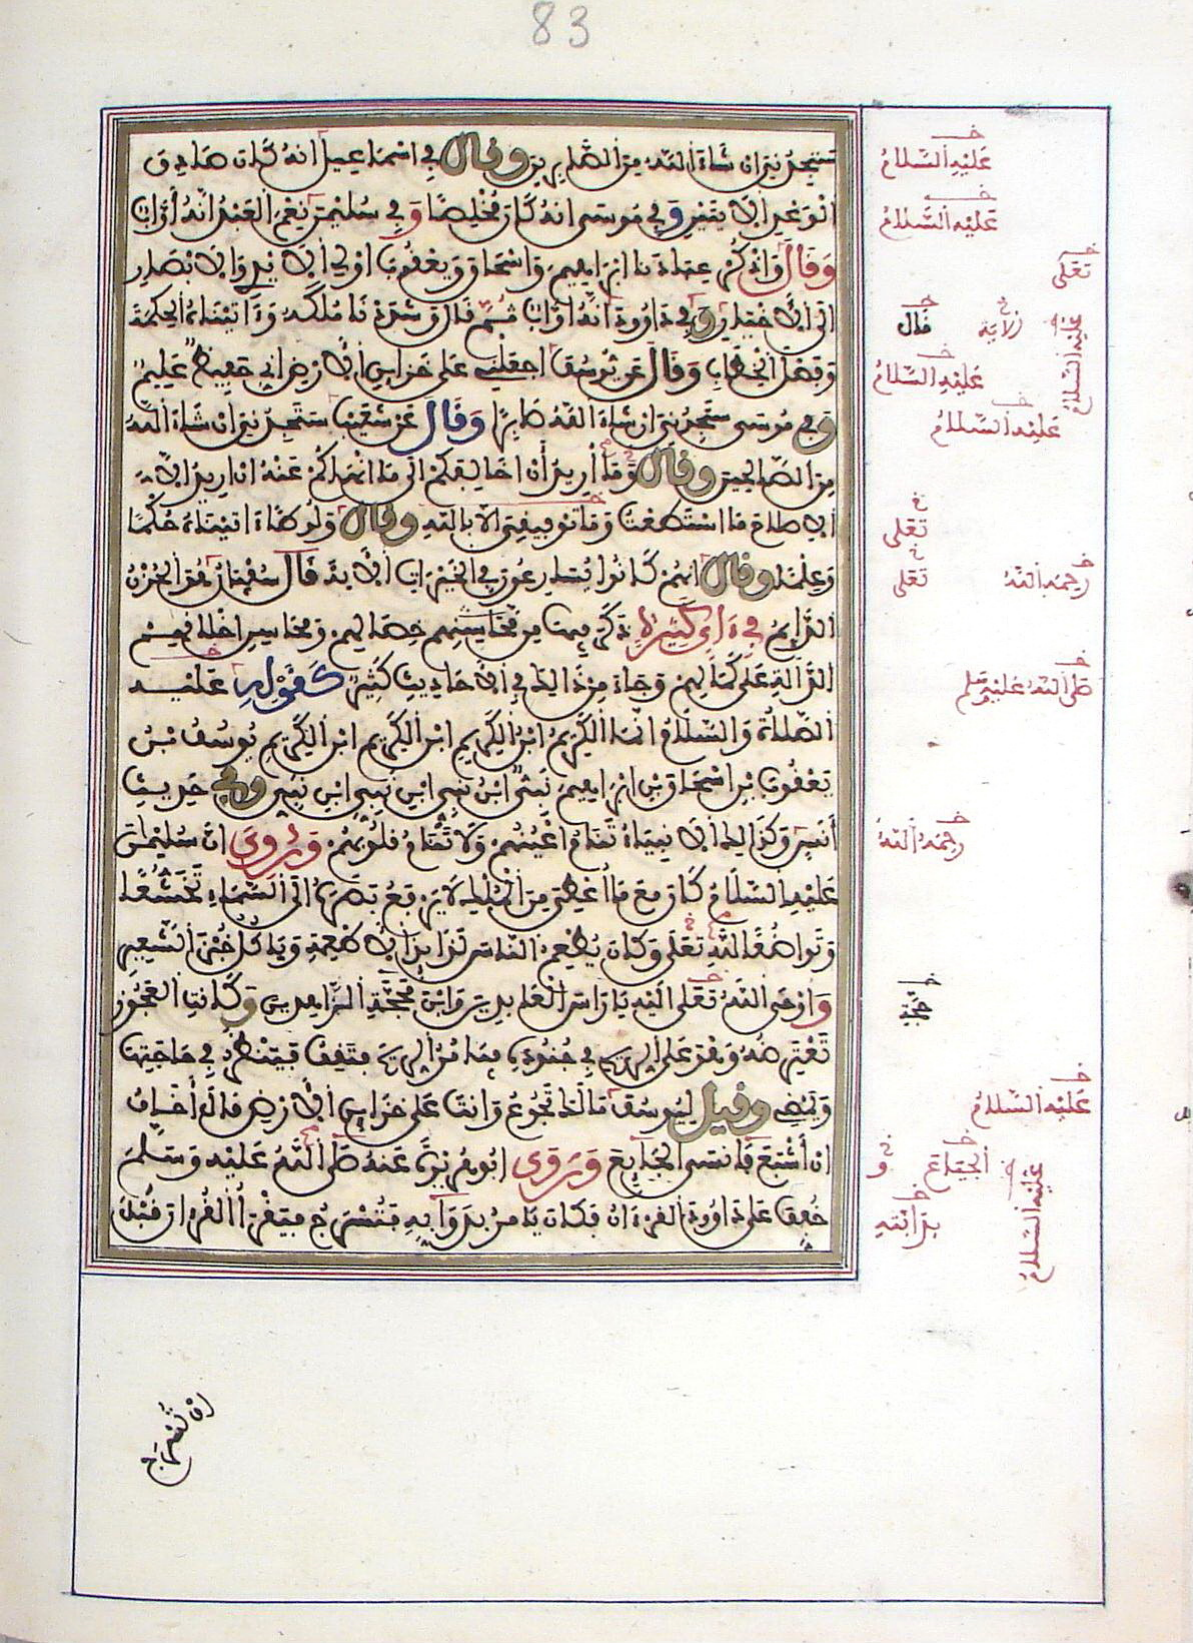 83
ستجدني ان شاء الله من الصابرين وقال في اسماعيل انه كان صادق
الوعد الايتين وفي موسى انه كان مخلصا وفي سليمن نعم العبد انه أواب
وقال واذكر عبادنا ابرهيم واسحاق ويعقوب اولي الايدي والابصار
الى الاخيار وفي داوود انه اواب ثم قال وشددنا ملكه وءاتيناه الحكمة
وفصل الخطاب وقال عن يوسف اجعلني على خزاين الارض اني حفيظ عليم
وفي موسى ستجدني ان شاء الله صابرا وقال عن شعيب ستجدني ان شاء الله
من الصالحين وقال وما أريد أن اخالفكم الى ما انهاكم عنه ان اريد الا
الاصلاح ما استطعت وما توفيقي الا بالله وقال ولوطا ءاتيناه حكما
وعلما وقال انهم كانوا يسارعون في الخيرات الاية قال سفيان هو الحزن
الدايم في ءاي كثيرة ذكر فيها من محاسنهم خصالهم ومحاسن اخلاقهم
الدالة على كمالهم وجاء من ذالك في الاحاديث كثير كقوله عليه
الصلاة والسلام انما الكريم ابن الكريم ابن الكريم ابن الكريم يوسف بن
يعقوب بن اسحاق بن ابرهيم نبي ابن نبي ابن نبي ابن نبي وفي حديث
أنس وكذالك الانبياء تنام اعينهم ولا تنام قلوبهم وروي ان سليمان
عليه السلام كان مع ما اعطي من الملك لا يرفع بصره الى السماء تخشعا
وتواضعا لله تعلى وكان يطعم الناس لذايذ الاطعمة وياكل خبز الشعير
واوحى الله تعلى اليه يا راس العابدين وابن محجة الزاهدين وكانت العجوز
تعترضه وهو على الريح في جنوده فيامر الريح فتقف فينظر في حاجتها
ويمضي وقيل ليوسف مالك تجوع وانت على خزاين الارض قال أخاف
ان أشبع فأنسى الجايع وروى ابو هريرة عنه صلى الله عليه وسلم
خفف على داوود القرءان فكان يامر بدوابه فتسرج فيقرأ القرءان قبل
ان تسرج
عليه السلام
عليه السلام
تعلى
قال
الاية
عليه السلام
عليه السلام
عليه السلام
تعلى
تعلى
رحمه الله
صلى الله عليه وسلم
رحمه الله
محجة
عليه السلام
الجياع
و
عليه السلام